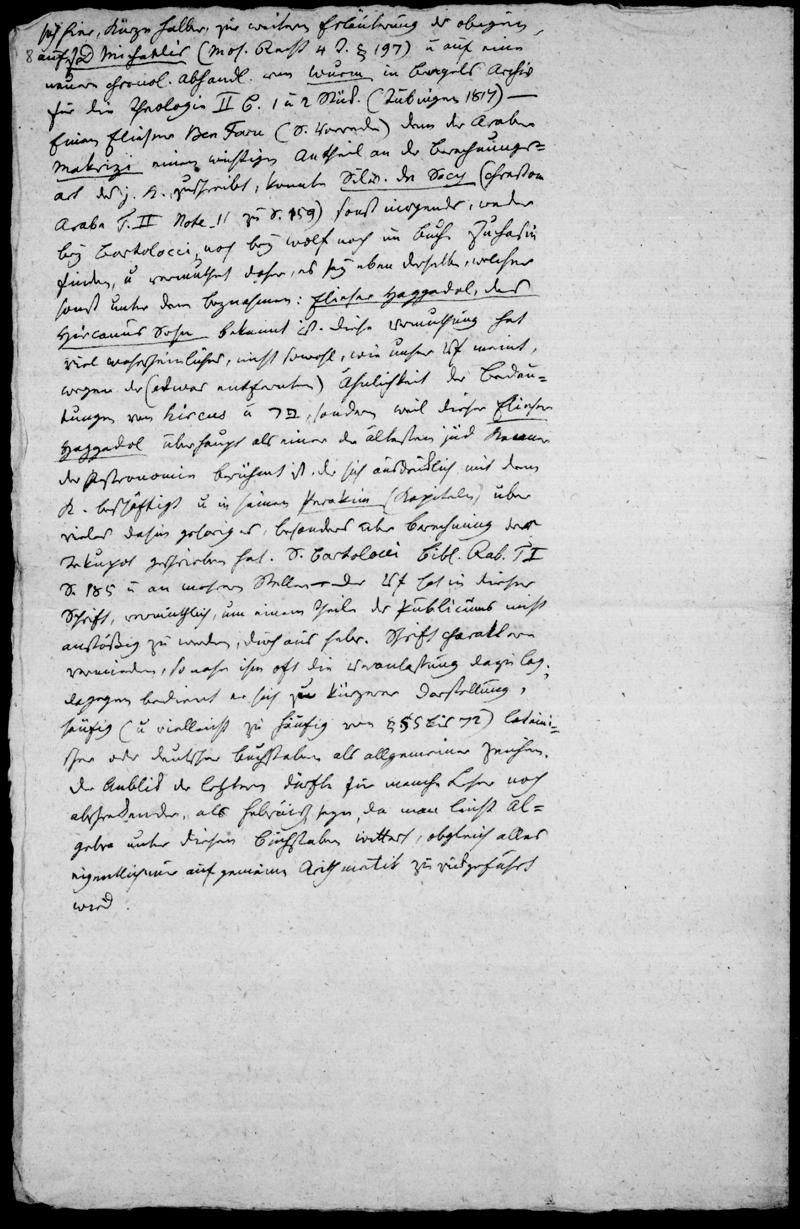 hier, Kürze halber, zur weitern Erläuterung der obigen,
auf JD Michaelis (Mos. Recht 4 T. § 197) u auf eine
neuere chronol. Abhandl. von Wurm in Bengels Archiv
für die Theologie II B. 1 u 2 Stück. (Tübingen 1817) —
Einen Elieser Ben Faru (S. Vorrede) dem der Araber
Makrizi einen wichtigen Antheil an der Berechnungs=
art des j. K. zuschreibt, konnte Silv. de Sacy (Chrestom
Arabe T. II Note 11 zu S. 159) sonst nirgends, weder
bey Bartolocci, noch bey Wolf noch im Buche Juchasin
finden, u vermuthet daher, es sey eben derselbe, welcher
sonst unter dem Beynahmen: Elieser Haggadol, des
Hircanus Sohn bekannt ist. Diese Vermuthung hat
viel wahrscheinliches, nicht sowohl, wie unser Vf meint,
wegen der (etwas entfernten) Ähnlichkeit der Bedeu=
tungen von hircus u פר, sondern weil dieser Elieser
Haggadol überhaupt als einer der ältesten jüd Kenner
der Astronomie berühmt ist, der sich ausdrücklich mit dem
K. beschäftigt u in seinen Perakim (Kapiteln) über
vieles dahin gehöriges, besonders über Berechnung der
Tekuphot geschrieben hat. S. Bartolocci Bibl. Rab. T I
S. 185 u an mehrern Stellen — Der Vf hat in dieser
Schrift, vermuthlich, um einem Theile des Publicums nicht
anstößig zu werden, durchaus hebr. Schriftcharaktere
vermieden, so nahe ihm oft die Veranlassung dazu lag,
dagegen bedient er sich zur kürzerer Darstellung,
häufig (u vielleicht zu häufig von § 55 bis 72) lateini=
scher oder deutscher Buchstaben als allgemeiner Zeichen.
Der Anblick der letztern dürfte für manche Leser noch
abschreckender, als hebräisch seyn, da man leicht Al=
gebra unter diesen Buchstaben wittert, obgleich alles
eigentlich nur auf gemeine Arithmetik zurückgeführt
wird.